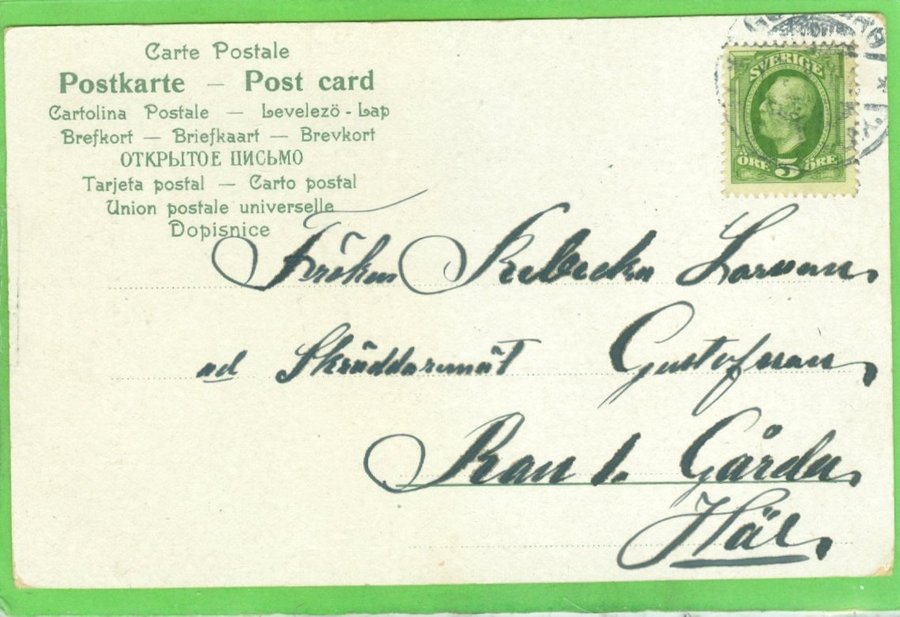 Carte Postale
Postkarte — Post card
Cartolina Postale — Levelező-Lap
Brefkort — Briefkaart — Brevkort
ОТКРЫТОЕ ПИСЬМО
Tarjeta postal — Carto postal
Union postale universelle
Dopisnice
SVERIGE
ÖRE 5 ÖRE
Fröken Rebecka Larsson
ad Skräddaremäst Gustafsson
Ran 1. Gårda
Här